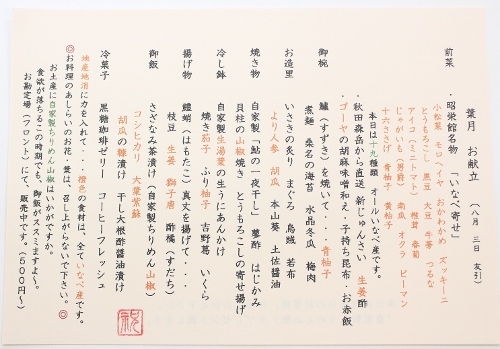 葉月 お献立 (八月 三日 友引)
前菜
・昭栄館名物 「いなべ寄せ」
小松菜 モロヘイヤ おかわかめ ズッキーニ
とうもろこし 黒豆 大豆 牛蒡 つるな
アイコ(ミニトマト) 椎茸 春菊
じゃがいも(男爵) 南瓜 オクラ ピーマン
十六ささげ 青柚子 黄柚子
本日は十九種類 オールいなべ産です。
・秋田森岳から直送 新じゅんさい 生姜酢
・ゴーヤの胡麻味噌和え、子持ち昆布・お赤飯
御椀
鱸(すずき)を焼いて・・・青柚子
煮麺 桑名の海苔 水晶冬瓜 梅肉
お造里
いさきの炙り まぐろ 烏賊 若布
より人参 胡瓜 本山葵 土佐醤油
焼き物
自家製「鮎の一夜干し」 蓼酢 はじかみ
貝柱の山椒焼き とうもろこしの寄せ揚げ
冷し鉢
自家製生湯葉の生うにあんかけ
焼き茄子 ふり柚子 吉野葛 いくら
揚げ物
鱧蛸(はもたこ)真丈を揚げて・・
枝豆 生姜 獅子唐 酢橘(すだち)
御飯
さざなみ茶漬け(自家製ちりめん山椒)
コシヒカリ 大葉紫蘇
胡瓜の糠漬け 干し大根酢醤油漬け
冷菓子
黒糖珈琲ゼリー コーヒーフレッシュ
地産地消に力を入れて・・橙色の食材は、全ていなべ産です。
◎お料理のあしらいのお花・葉は、召し上がらないで下さい。◎
お土産に自家製ちりめん山椒はいかがですか。
食欲が落ちるこの時期でも、御飯がススミますよ~。
お勘定場(フロント)にて、販売中です。(600円~)